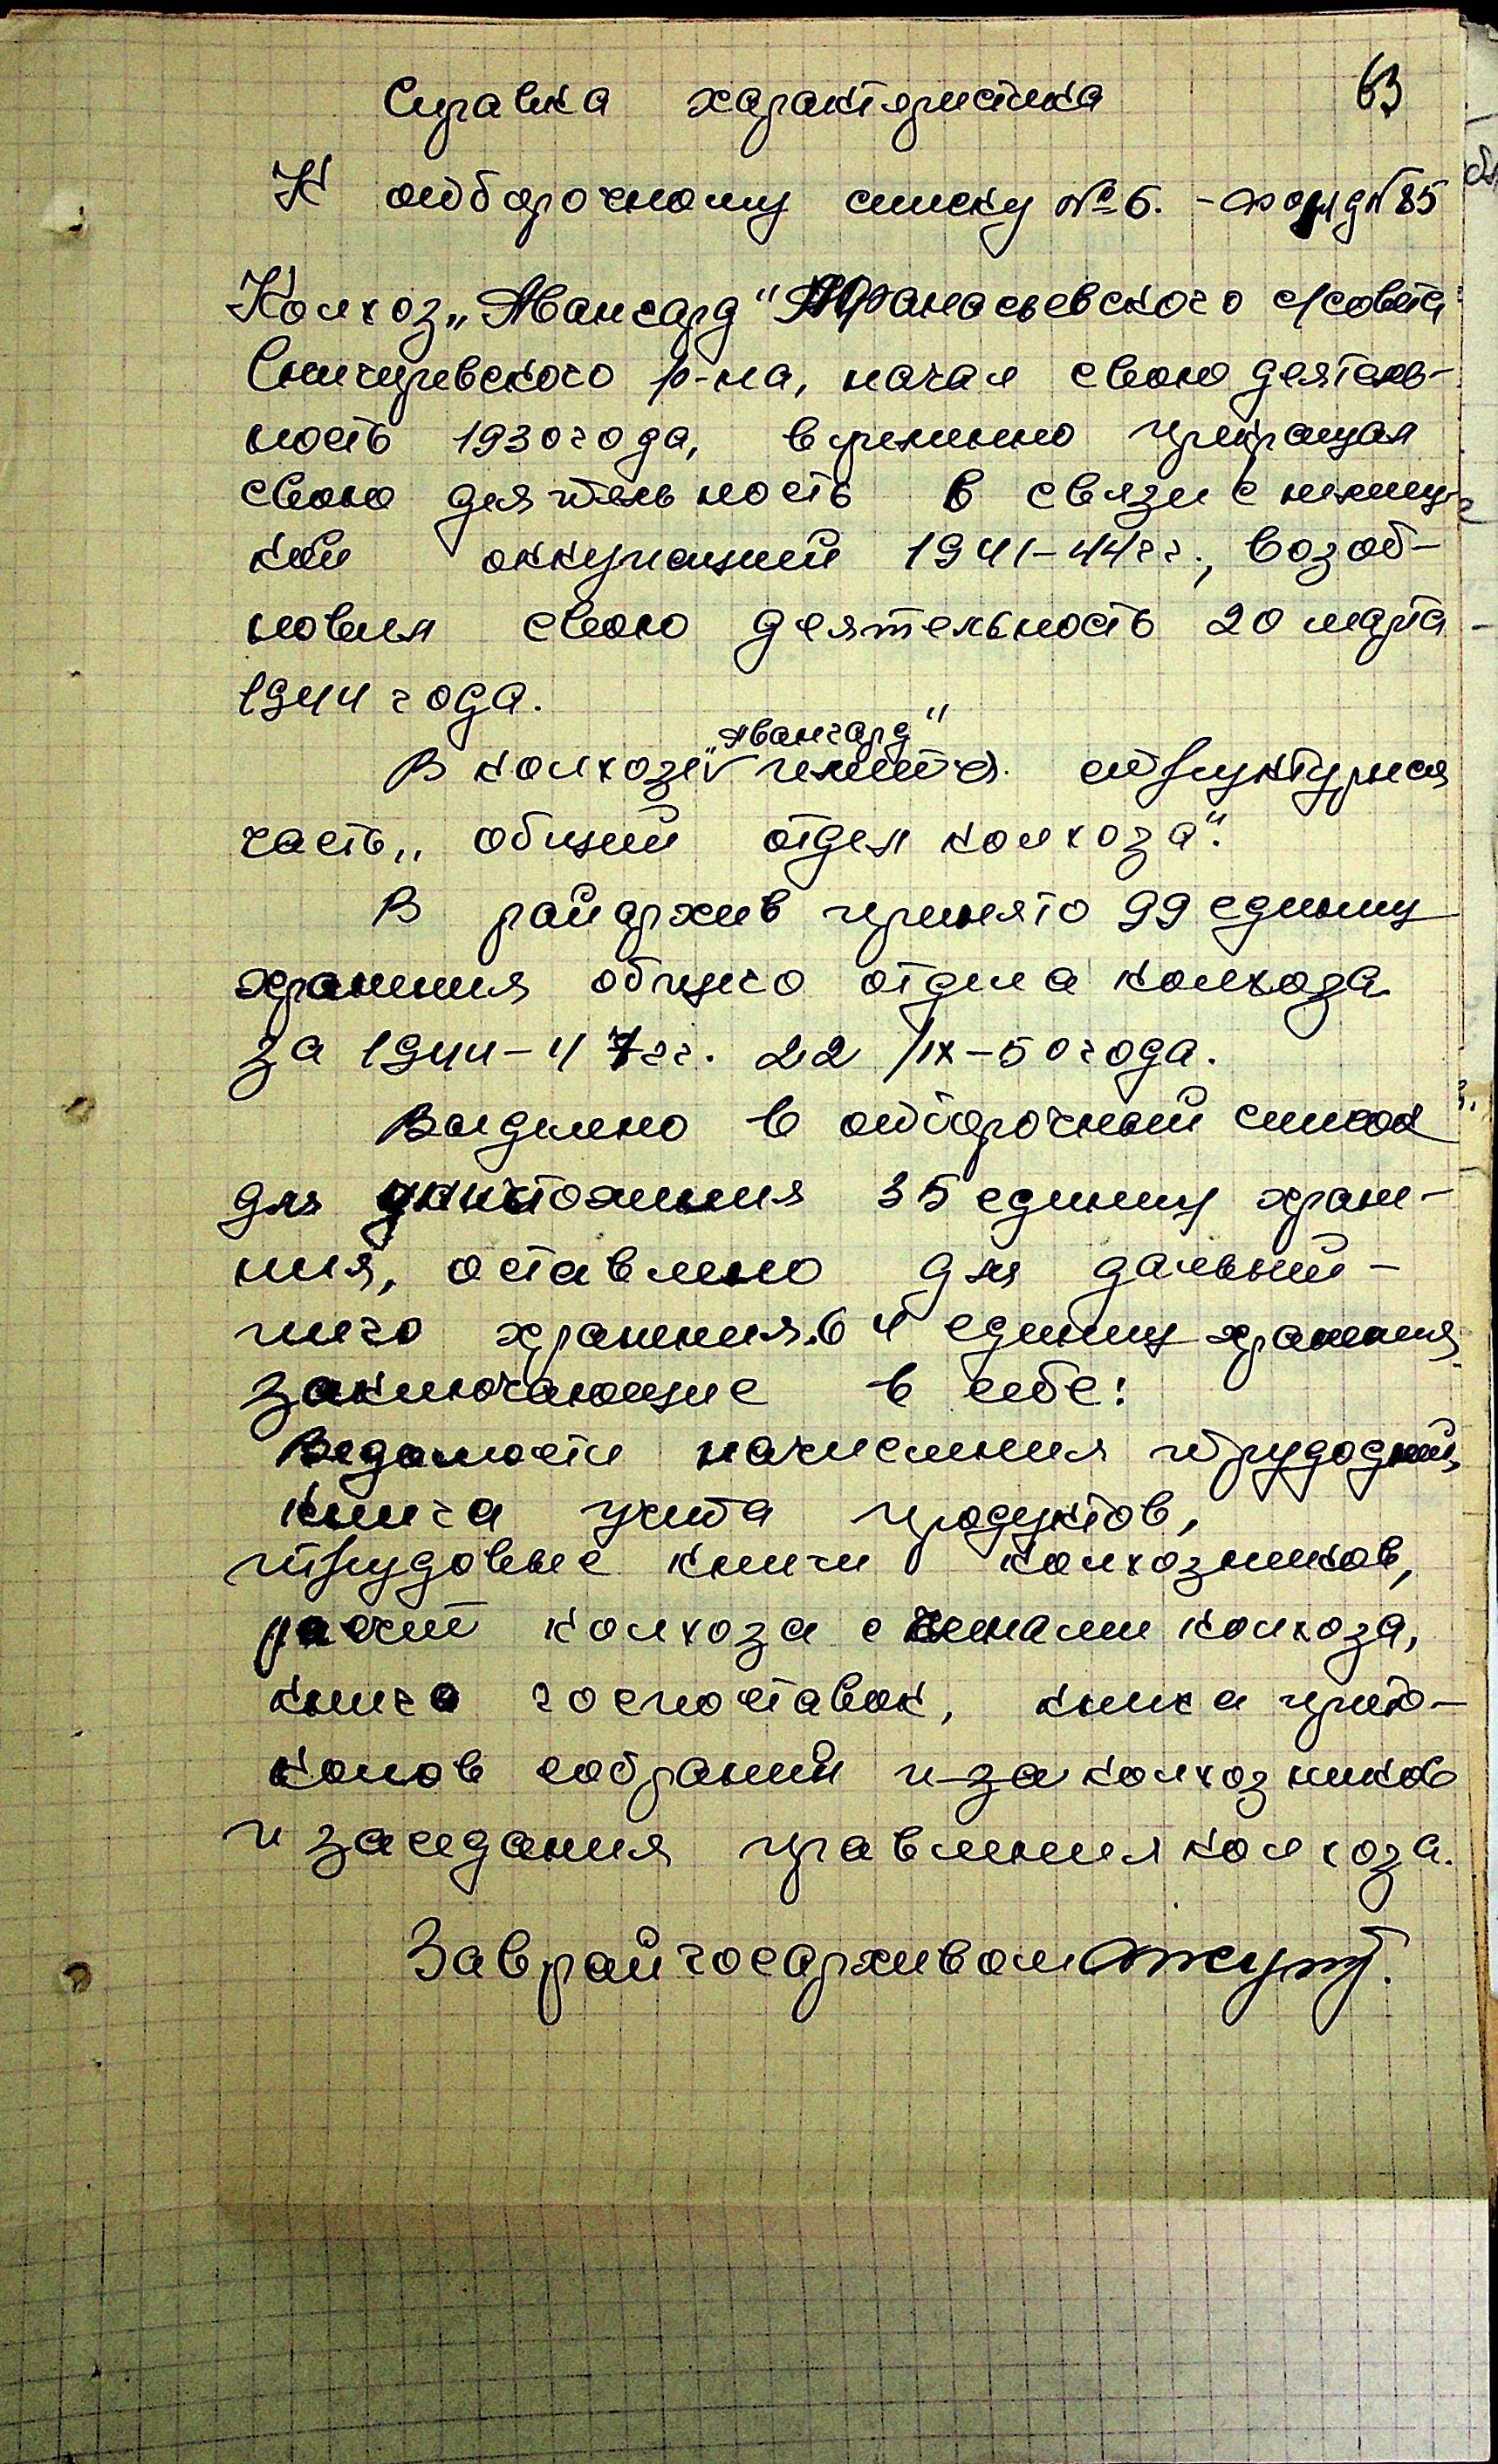 Справка характеристика 63
К отборочному списку № 6. - фонд № 85
Колхоз „Авангард" Афанасьевского с/совета
Снигиревского р-на, начал свою деятель-
ность 1930 года, временно прекращал
свою деятельность в связи с немец-
кой оккупацией 1941-44 гг., возоб-
новил свою деятельность 20 марта
1944 года.
В колхозе „Авангард" имеется структурная
часть „общий отдел колхоза".
В райархив принято 99 единиц
хранения общего отдела колхоза
за 1944-47 гг. 22/IX-50 года.
Выделено в отборочный список
для уничтожения 35 единиц хране-
ния, оставлено для дальней-
шего хранения 64 единиц хранения
заключающие в себе:
Ведомости начисления трудодней,
книга учета продуктов,
трудовые книги колхозников,
расчет колхоза с членами колхоза,
книга госпоставок, книга прото-
колов собраний и за колхозников
и заседания правления колхоза.
Заврайгосархивом